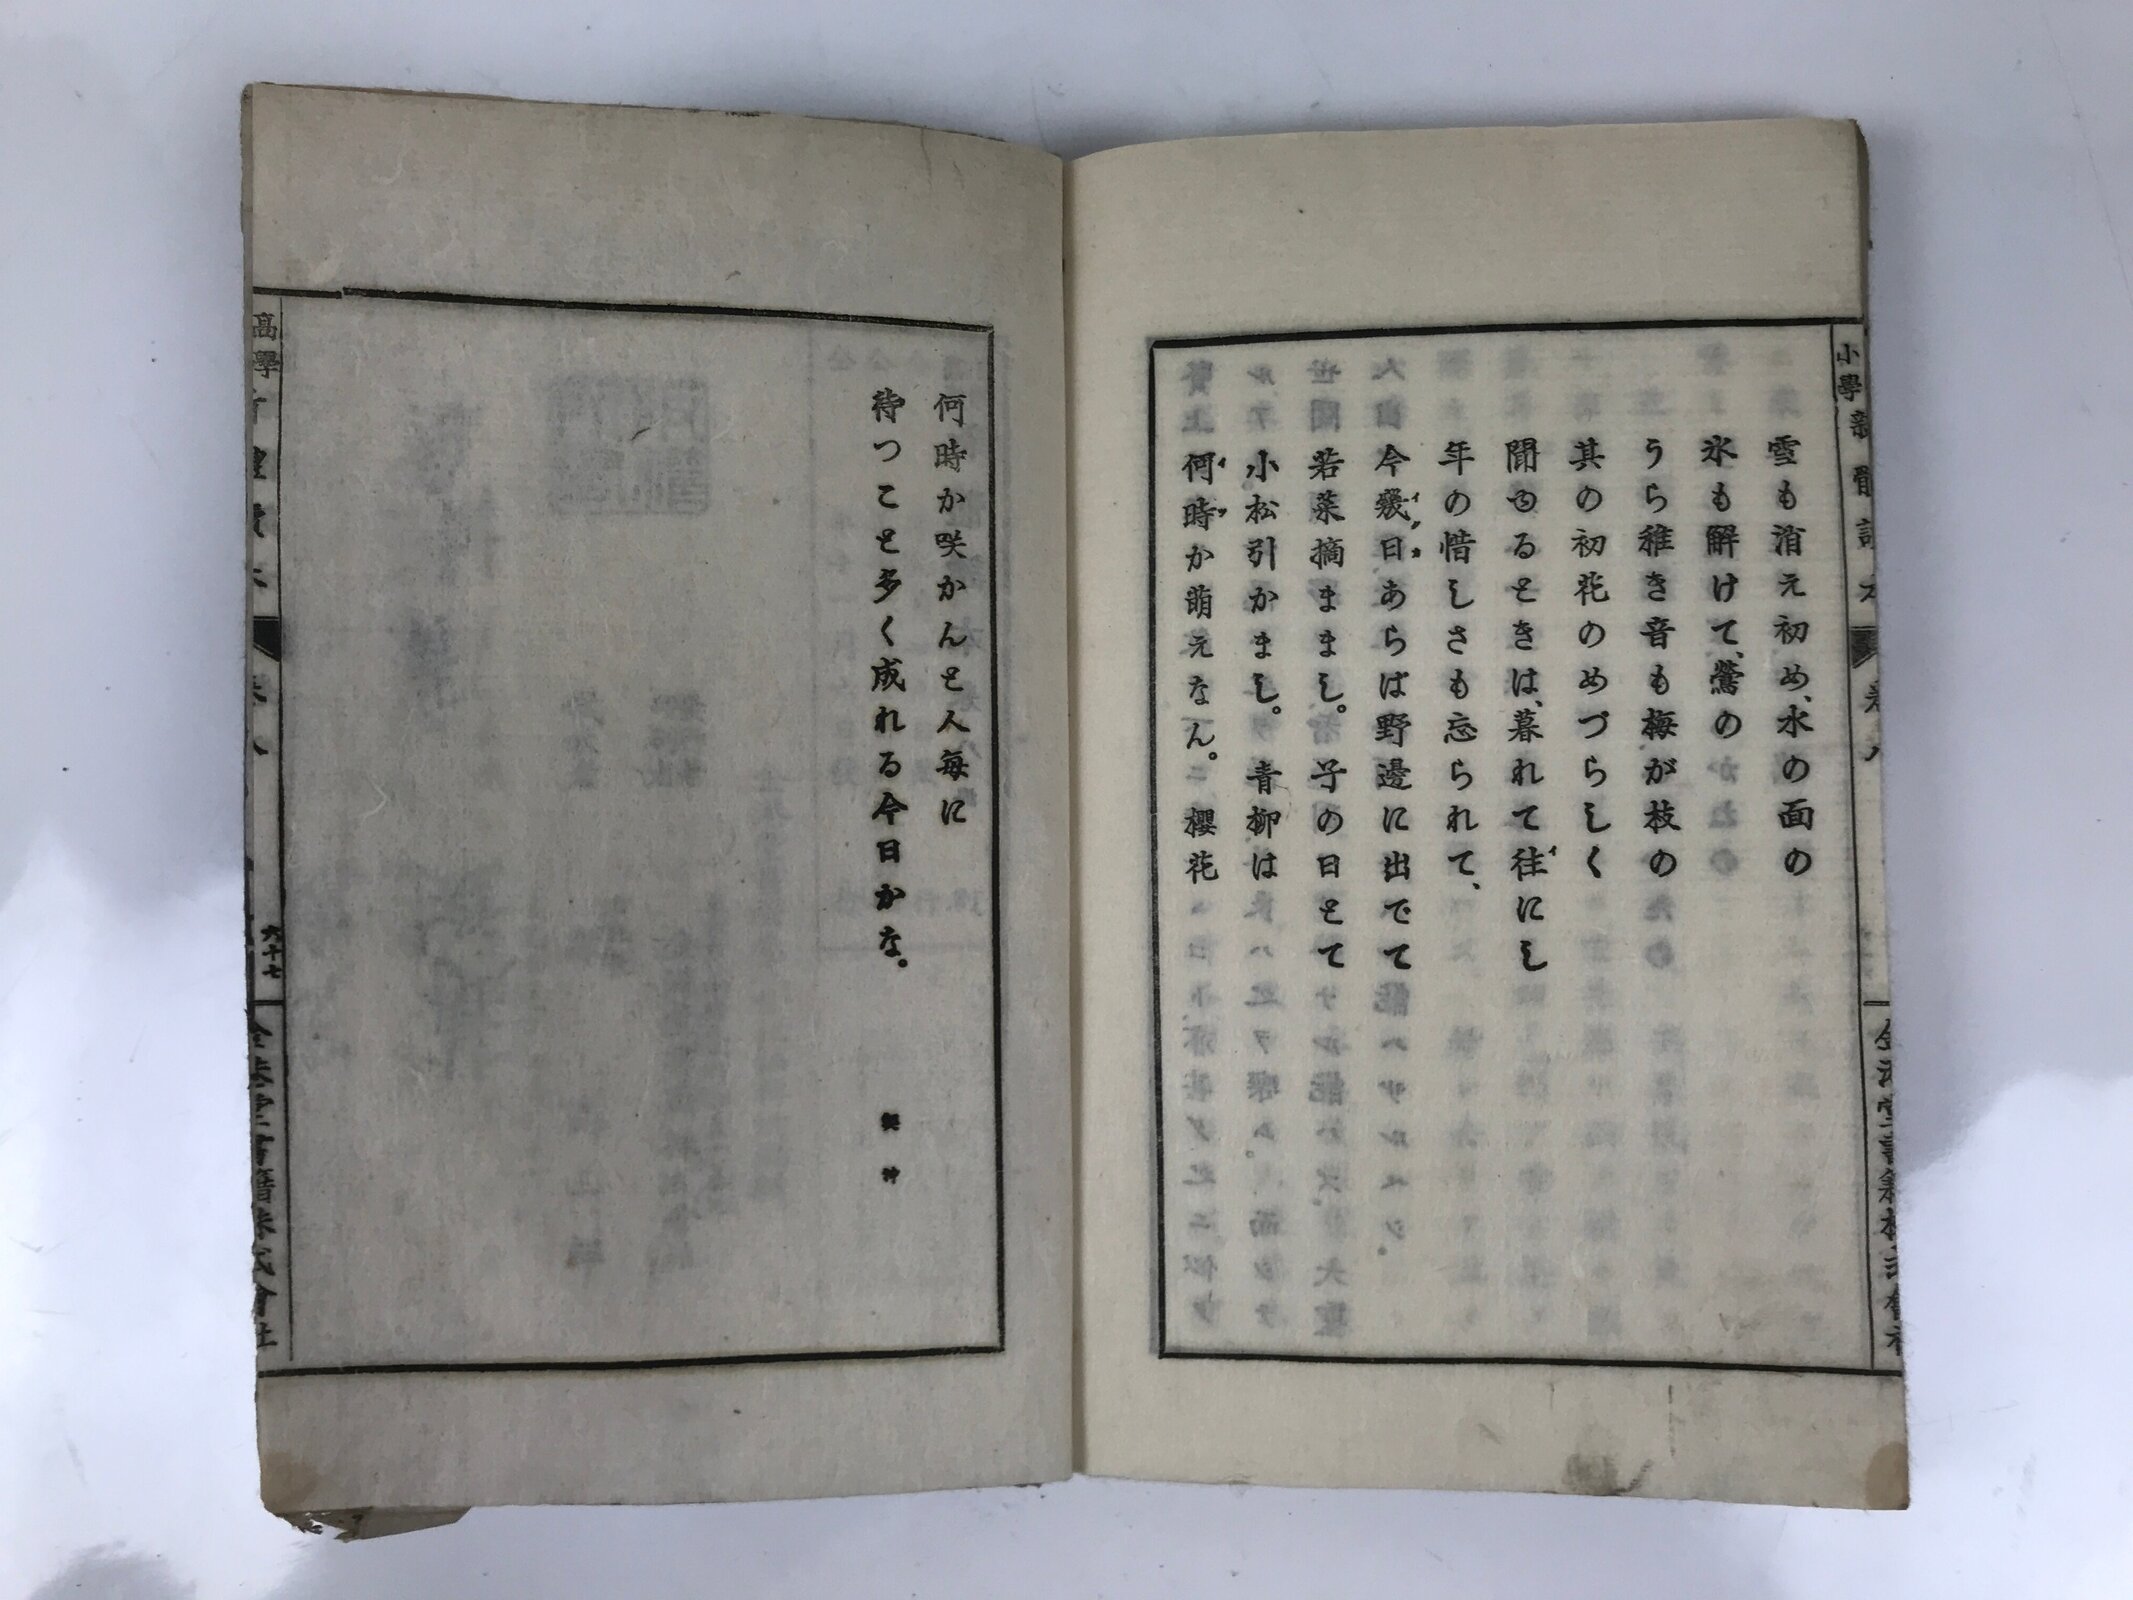 雪も消え初め、水の面の
氷も解けて、鶯の
うら稚き音も梅が枝の
其の初花のめづらしく
聞ゆるときは、暮れて往にし
年の惜しさも忘られて、
今幾日あらば野邊に出でて
若菜摘ままし。子の日とて
小松引かまし。青柳は
何時か萌えなん。櫻花
何時か咲かんと人毎に
待つこと多く成れる今日かな。
小學新體讀本
卷八
六十七
書籍株式會社